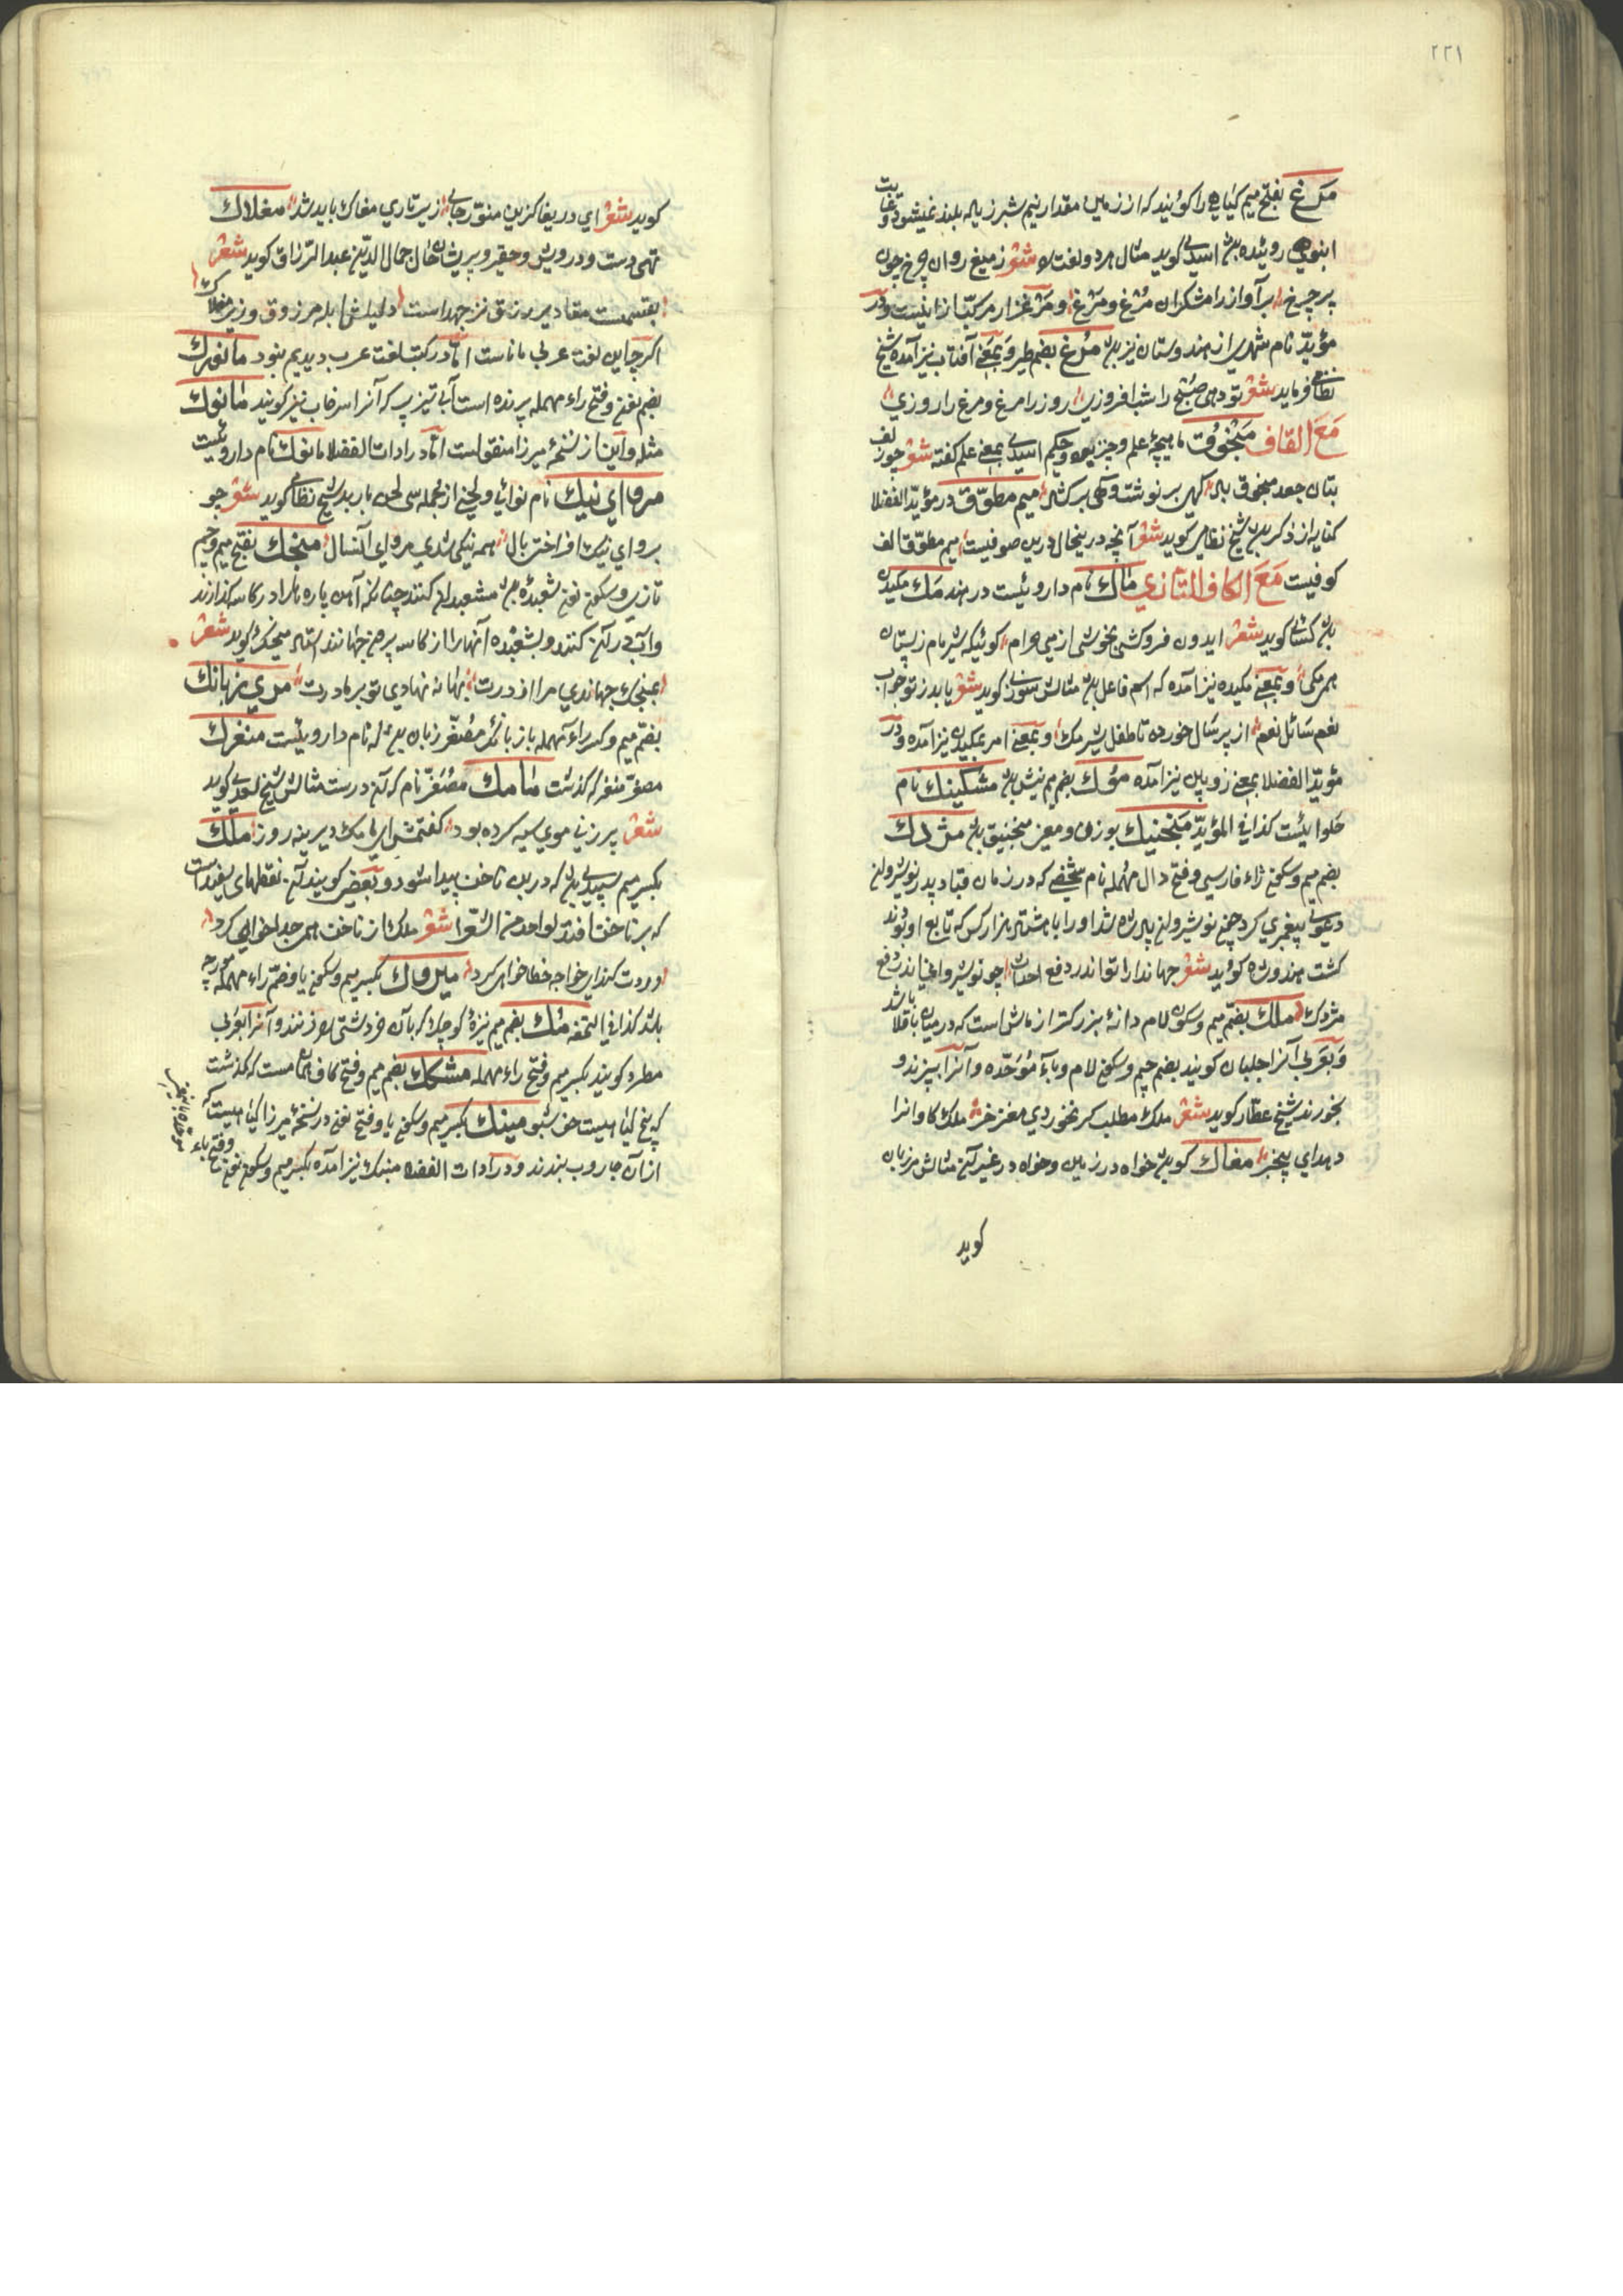 ٢٢١
مرغ بفتح میم کیاهی را کویند که از زمین مقدار نیم شبر زیاله بلند نمیشود و بغایت
انبوه روئیده اسدی کوید مثال هر دو لغت شعر ز میغ روان چرخ چون
پر چرغ بر آواز رامشکران مرغ و مرغ و مرغزار مرکب از اینست و در
مؤید نام شهری از هندوستان نیز مرغ بضم طیر و بمعنی آفتاب نیز آمده شیخ
نظامی فرماید شعر تو دهی صبح را شب افروزی روز را مرغ و مرغ را روزی
مع القاف منجوق ماهیچهٔ علم و حکیم اسدی بمعنی علم کفته شعر چو زلف
بتان جعد منجوق باد کهی بر نوشت و کهی بر کشاد میم مطوق در مؤید الفضلا
کنایه از ذکر شیخ نظامی کوید شعر آنچه در صوفیست میم مطوق الف
کوفیست مع الکاف التازی ماك نام داروئیست در هند مك مکیدن
کسائی کوید شعر ایدون فروکشی بخوشی از می حرام کوئیکه شیر مام ز پستان
همی مکی و بمعنی مکیده نیز آمده که اسم فاعل مثالش سوزنی کوید شعر یابد ز تو جواب
نعم سائل نعم از پیر سال خورده تا طفل شیر مك و بمعنی امر بمکیدن نیز آمده و در
مؤید الفضلا بمعنی زوبین نیز آمده موك بضم میم نیش مشکینك نام
حلوائیست کذا فی المؤید منجنیك بوزن و معنی منجنیق مژدك
بضم میم و سکون زاء فارسی و فتح دال مهمله نام شخصی که در زمان قباد پدر نوشیروان
دعوی پیغمبری کرد چون نوشیروان پادشاه شد او را با هشتاد هزار کس که تابع او بودند
کشت هندوشاه کوید شعر جهاندارا تو اندر دفع احداث چو نوشیروانی اندر دفع
مژدك ملك بضم میم و سکون لام دانهٔ بزرکتر از ماش است که در میان باقلا باشد
و بعربی آنرا جلبان کویند بضم جیم و سکون لام و باء موحده و آنرا بپزند و
بخورند شیخ عطار کوید شعر ملك مطلب کر نخوردی مغز خر ملك کاوانرا
دهد ای بیخبر مغاك کوی خواه در زمین و خواه در غیر آن مثالش مرزبان
کوید
کوید شعر ای دریغا کزین منور جای زیر تاری مغاك باید شد مغلاك
تهی دست و درویش و حقیر و پریشان حال جمال الدین عبد الرزاق کوید شعر
بقسمت مقادیر رزق نز جهد است دلیلش ابله مرزوق و زیرك مغلاك
اکرچه این لغت عربی ماناست اما در کتب لغت عرب دیدیم نبود مانورك
بضم نون و فتح راء مهمله پرنده است آبی تیز پر که آنرا سرخاب نیز کویند مانوك
مثله و این از نسخهٔ میرزا منقولست اما در ادات الفضلا مانوك نام داروئیست
مروای نیك نام نوائی و لحنی از جمله سی لحن باربد شیخ نظامی کوید شعر چو
بر وای نیك افراختی بال همه نیکی شدی مروای آنسال منجك بفتح میم و جیم
تازی و سکون نون شعبدهٔ مشعبدان کنند چنانکه آهن پاره ها را در کاسه کذارند
و آب در آن کنند و بشعبده آنها را از کاسه بیرون جهانند استاد منجیك کوید شعر
بمنجك جهاندی مرا از درت بهانه نهادی تو بر مادرت مری زبانك
بضم میم و کسر راء مهمله با زبانك مصغر زبان نام داروئیست منغرك
مصغر منغر که کذشت مامك مصغر مام که آن درست مثالش شیخ سعدی کوید
شعر پیر زنی موی سیه کرده بود کفتمش ای مامك دیرینه روز ملك
بکسر میم سپیدی که در بن ناخن پیدا شود و بعضی کویند آن نقطهای سفید است
که بر ناخن افتد لواحد من الشعرا شعر ملك از ناخن همی جدا خواهی کرد
دردت کند ای خواجه خطا خواهی کرد میروك بکسر میم و سکون یا و ضم راء مهمله مورچه
باشد کذا فی التحفه مزك بضم میم نیزهٔ کوچك که بآن خردشتی ها زنند و آنرا بعربی
مطرد کویند بکسر میم و فتح راء مهمله مشکك بضم میم و فتح کاف همان مست که کذشت
که بیخ کیاهیست خوشبو مینك بکسر میم و سکون یا و فتح نون در نسخهٔ میرزا کیاهیست که
از آن جاروب بندند و در ادات الفضلا منبك نیز آمده بکسر میم و سکون نون و فتح باء